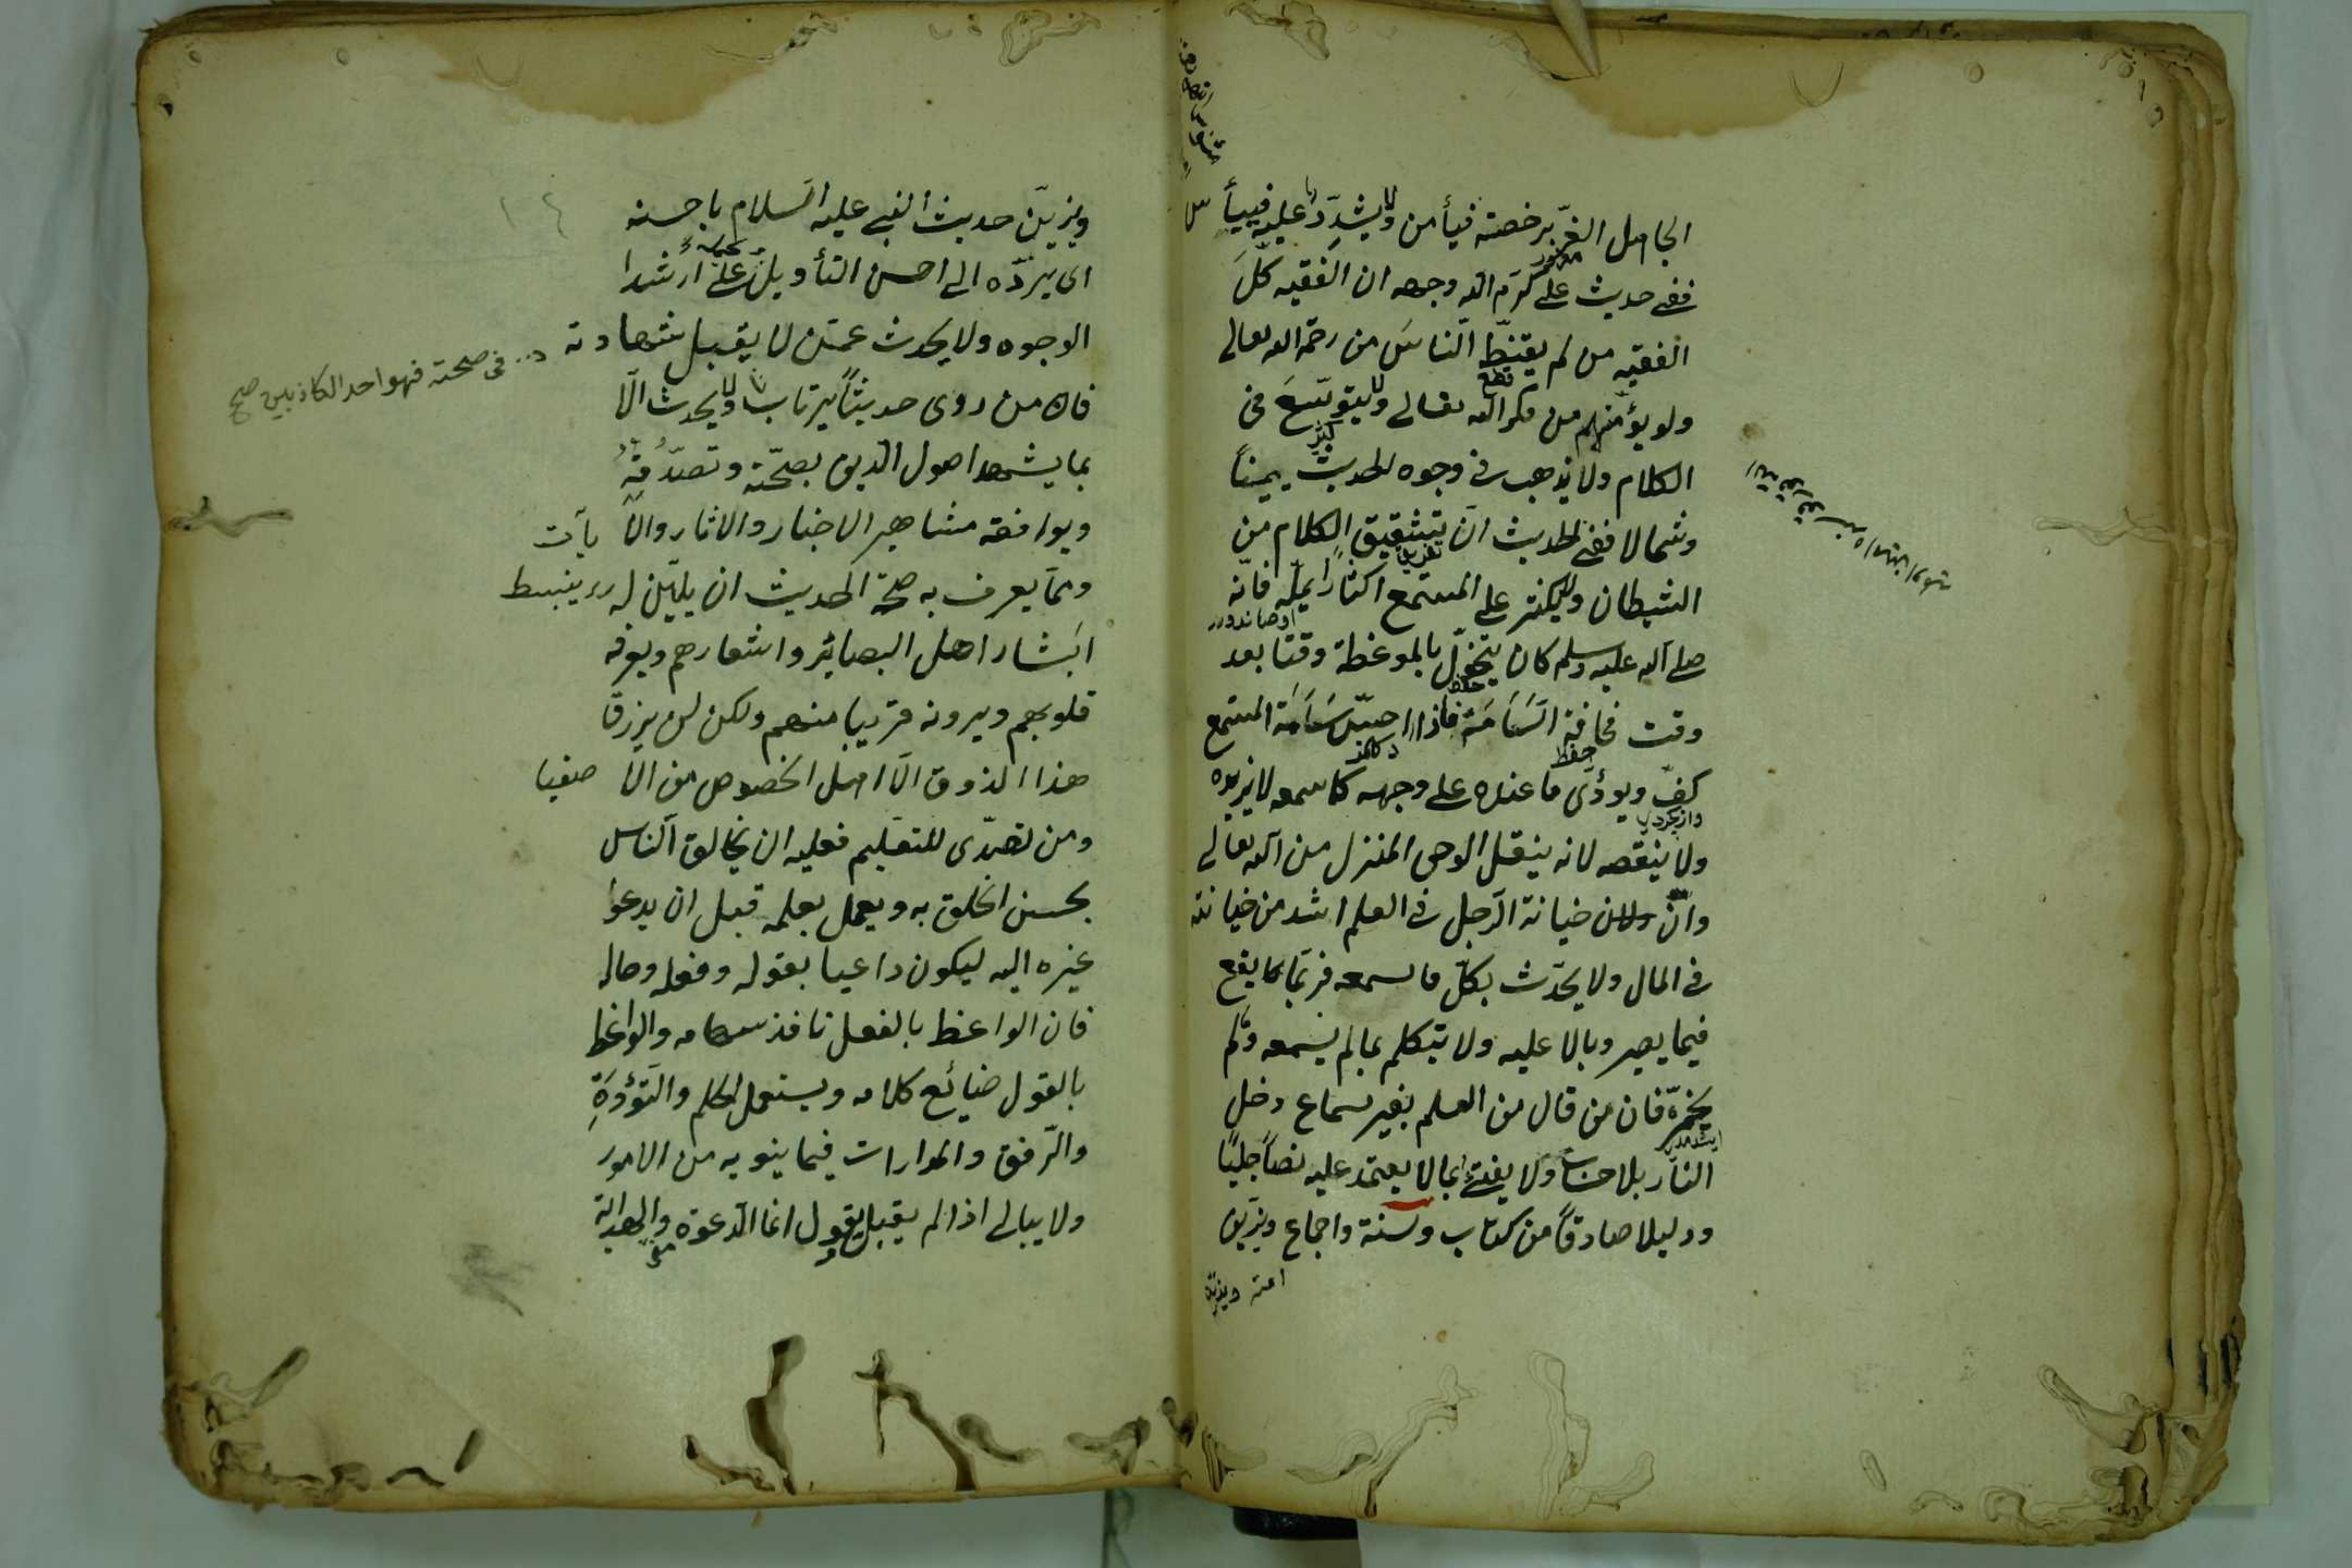 الجاهل الغرّ برخصته فيأمن ولا يشدّد عليه فييأس
ففى حديث على كرّم الله وجهه ان الفقيه كلّ
الفقيه من لم يقنّط النّاس من رحمة الله تعالى
ولم يؤمنهم من مكر الله تعالى ولا يتوسّع فى
الكلام ولا يذهب فى وجوه الحديث يمينا
وشمالا ففى الحديث ان تشقيق الكلام من
الشيطان ولا يكثر على المستمع اكثارا يملّه فانّه
صلى الله عليه وسلم كان يتخوّل بالموعظة وقتا بعد
وقت مخافة السّامة فاذا احسّ سَامة المستمع
كفّ ويؤدّى ما عنده على وجهه كما سمعه لا يزيده
ولا ينقصه لانه ينقل الوحى المنزل من الله تعالى
وانّ خيانة الرّجل فى العلم اشد من خيانته
فى المال ولا يحدّث بكلّ ما سمعه فربّما يقع
فيما يصير وبالا عليه ولا يتكلم بما لم يسمعه ولم
يخبره فان من قال من العلم بغير سماع دخل
النّار بلا حساب ولا يفتى بما لا يعتمد عليه نصّا جليّا
ودليلا صادقا من كتاب وسنة واجماع ويزيّن
ويزيّن حديث النبى عليه السّلام باحسنه
اى يردّه الى احسن التأويل على ارشد
الوجوه ولا يحدث عمّن لا يقبل شهادته
فان من روى حديثا يرتاب فى صحته فهو احد الكاذبين صح
ولا يحدث الّا
بما يشهد اصول الدّين بصحّته وتصدّقه
ويوافقه مشاهير الاخبار والآثار والآيات
وممّا يعرف به صحّة الحديث ان يليّن له وينبسط
ابشار اهل البصائر واشعارهم ويعرفه
قلوبهم ويرونه قريبا منهم ولكن لن يرزق
هذا الذوق الّا اهل الخصوص من الاصفيا
ومن تصدّى للتعليم فعليه ان يخالق النّاس
بحسن الخلق به ويعمل بعلمه قبل ان يدعو
غيره اليه ليكون داعيا بقوله وفعله وحاله
فان الواعظ بالفعل نافذ سهامه والواعظ
بالقول ضائع كلامه ويستعمل الحلم والتّؤدة
والرّفق والمدارات فيما ينوبه من الامور
ولا يبالى اذا لم يقبل يقول انما الدّعوة والهداية